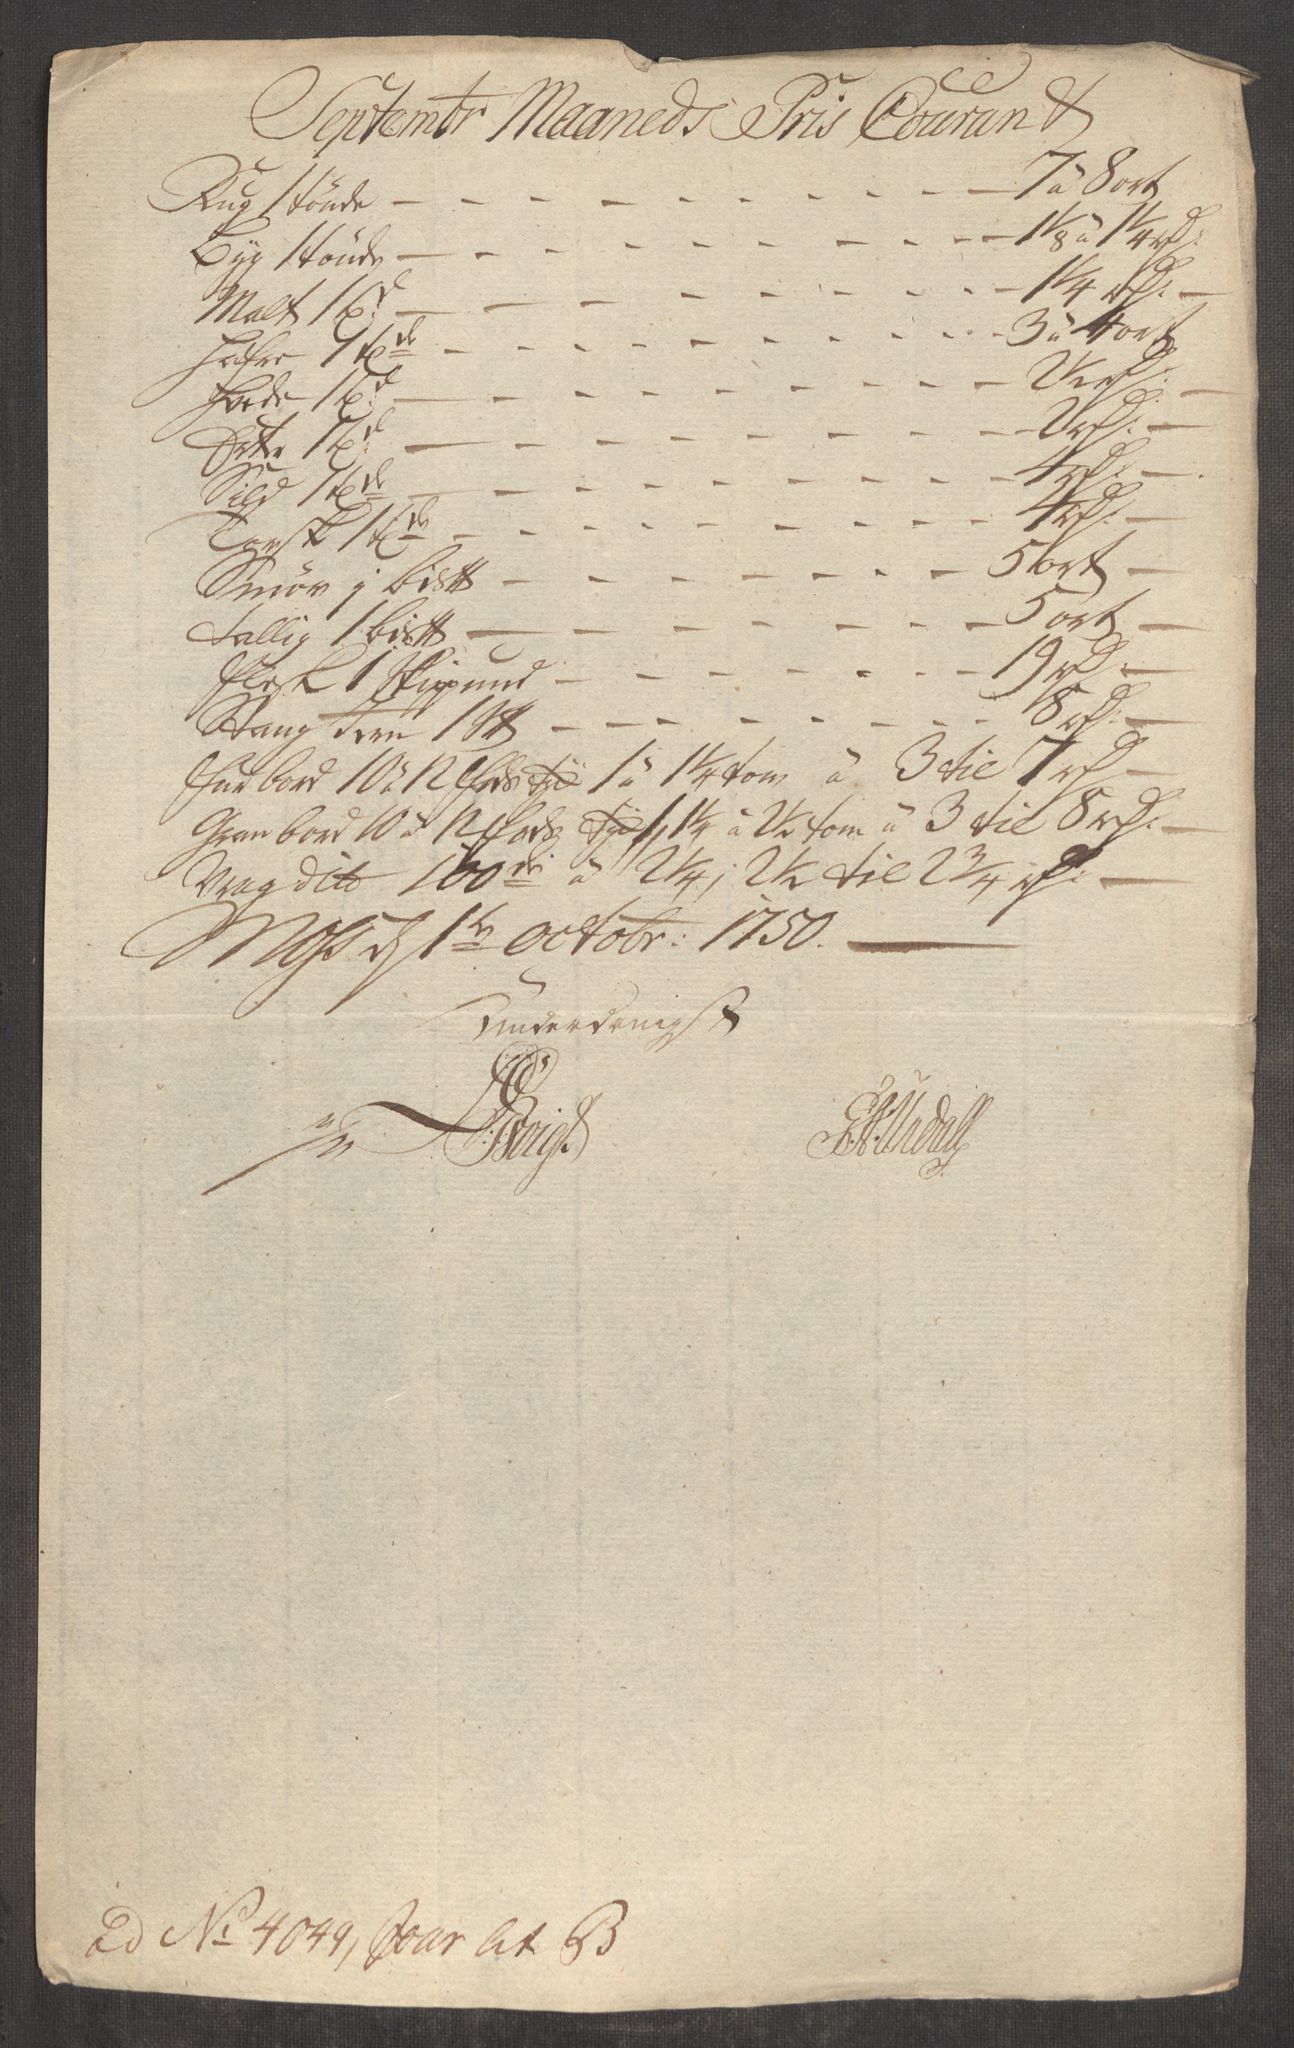 Septembr Maaneds Pris Courant
Rug 1 tönde - - - 7 à 8 ort
Byg 1 tönde - - - 1 1/8 à 1 1/4 rd:
Malt 1 td: - - - 1 1/4 rd:
Hafre 1 tde - - - 3 à 4 ort
Hvede 1 td: - - - 2 1/2 rd:
Erter 1 td: - - - 2 rd:
Sild 1 tde - - - 4 rd:
Torsk 1 tde - - - 4 rd:
Smör 1 bis℔ - - - 5 ort
Tallig 1 bis℔ - - - 5 ort
Flesk 1 Skippund - - - 19 rd:
Stang Jern 1 S℔ - - - 8 rd:
Furbord 10 à 12 fods 1 à 1 1/4 tom à 3 til 7 rd
Granbord 10 à 12 fods 1, 1 1/4 à 1 1/2 tom à 3 til 8 rd:
Vrag dito 100de à 2 1/4, 2 1/2 til 2 3/4 rd:
Moss d 1te octobr: 1750.
Underdanigst
Voigt
ad No 4049, Hoar lit B